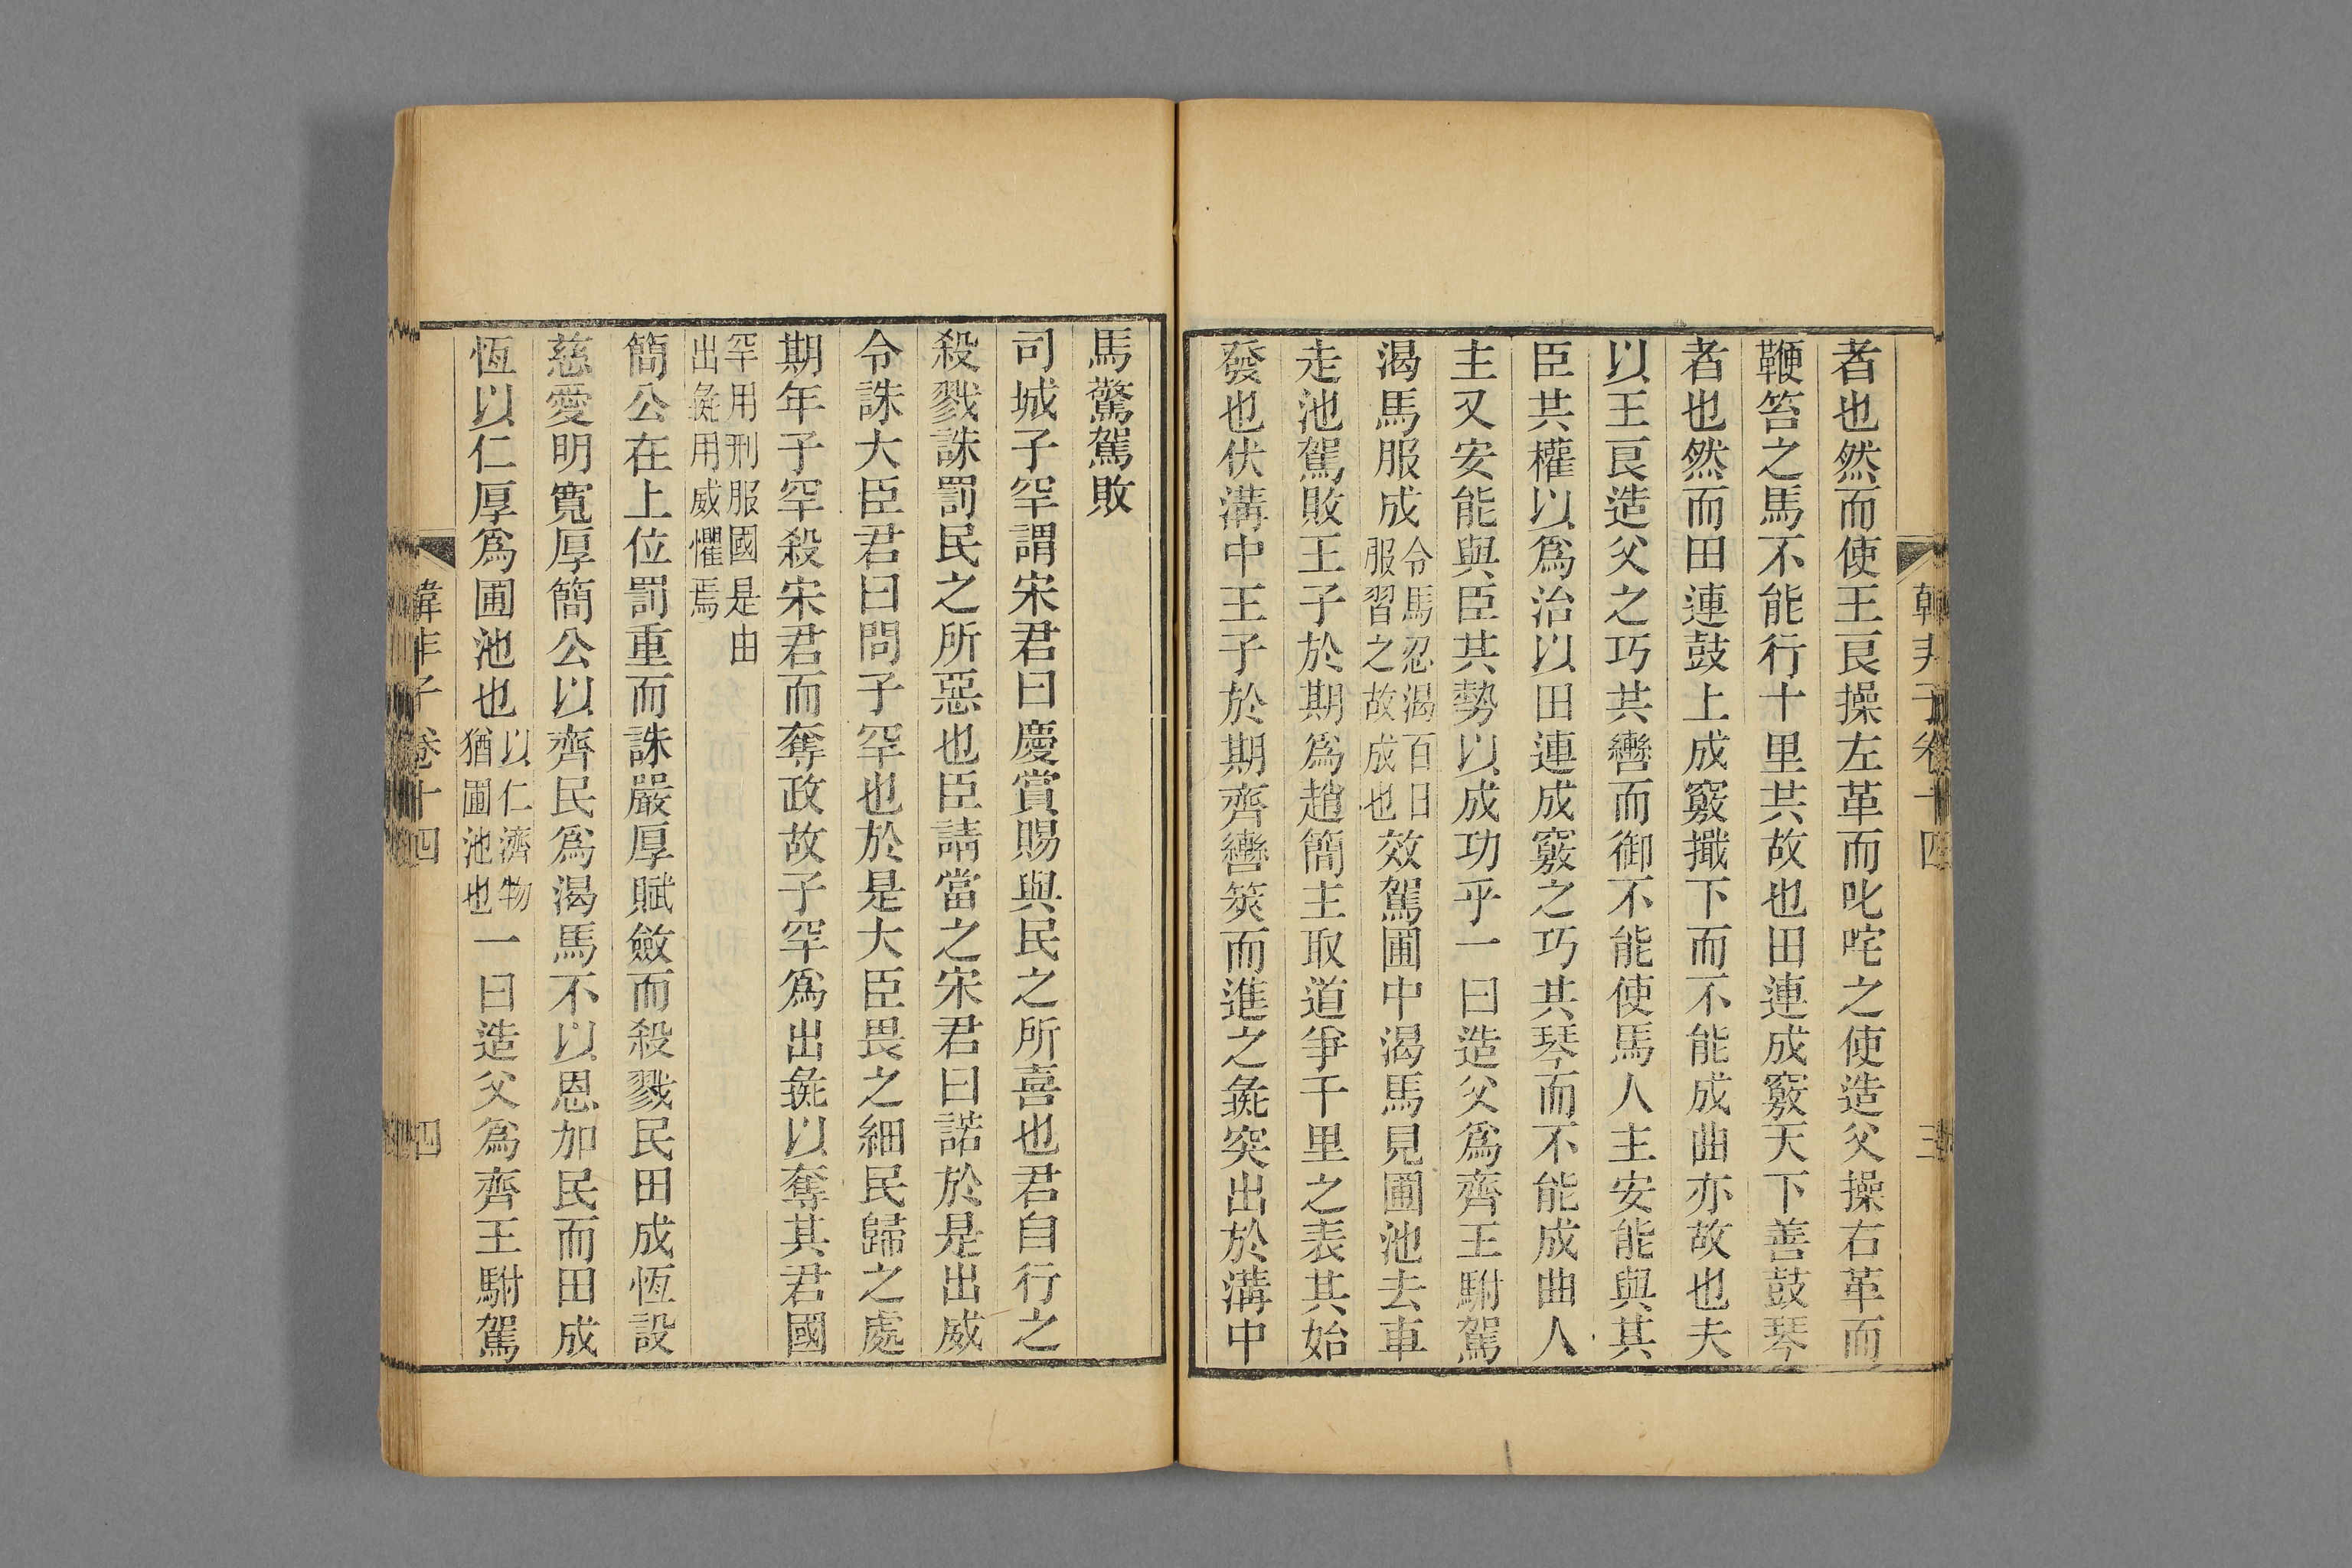 韓非子卷十四 三
者也然而使王良操左革而叱咤之使造父操右革而
鞭笞之馬不能行十里共故也田連成竅天下善鼓琴
者也然而田連鼓上成竅擑下而不能成曲亦故也夫
以王良造父之巧共轡而御不能使馬人主安能與其
臣共權以爲治以田連成竅之巧共琴而不能成曲人
主又安能與臣其勢以成功乎一曰造父爲齊王駙駕
渴馬服成令馬忍渴百日服習之故成也效駕圃中渴馬見圃池去車
走池駕敗王子於期爲趙簡主取道爭千里之表其始
發也伏溝中王子於期齊轡筴而進之彘突出於溝中
馬驚駕敗
司城子罕謂宋君曰慶賞賜與民之所喜也君自行之
殺戮誅罰民之所惡也臣請當之宋君曰諾於是出威
令誅大臣君曰問子罕也於是大臣畏之細民歸之處
期年子罕殺宋君而奪政故子罕爲出彘以奪其君國
罕用刑服國是由出彘用威懼焉
簡公在上位罰重而誅嚴厚賦斂而殺戮民田成恆設
慈愛明寬厚簡公以齊民爲渴馬不以恩加民而田成
恆以仁厚爲圃池也以仁濟物猶圃池也一曰造父爲齊王駙駕
韓非子卷十四 四